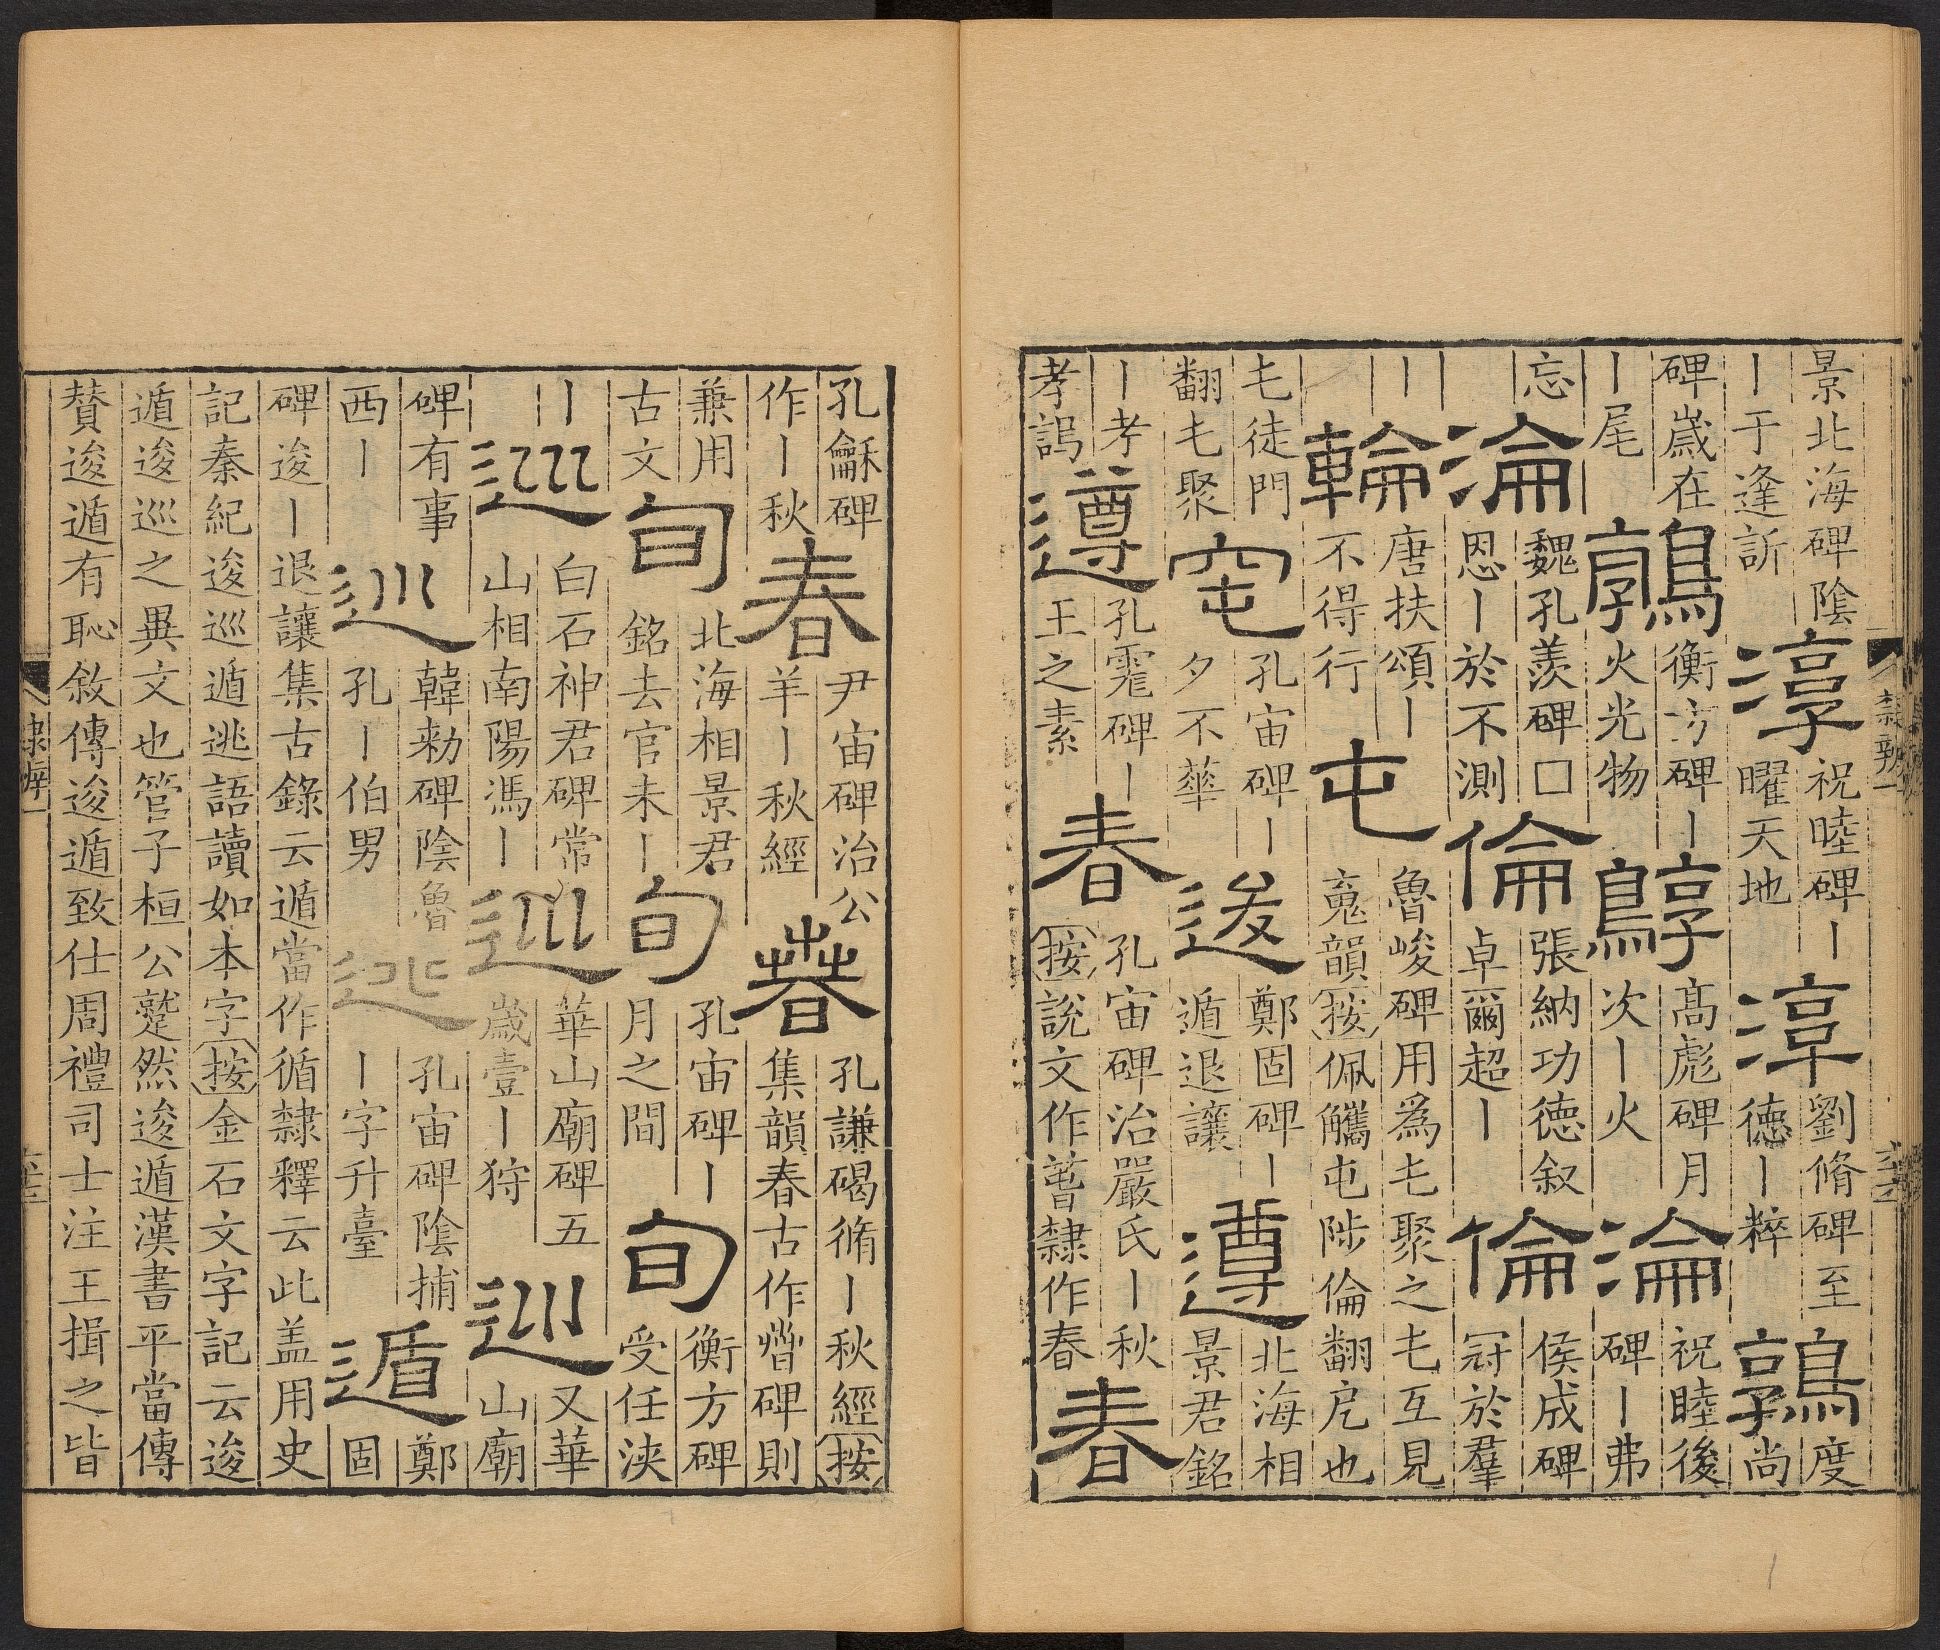 景北海碑陰
丨于逢訢
淳
祝睦碑丨
曜天地
淳
劉脩碑至
德丨粹
鶉
度
尚
碑歲在
丨尾
鶉
衡方碑丨
火光物
鶉
高彪碑月
次丨火
淪
祝睦後
碑丨弗
忘
淪
魏孔羨碑囗
恩丨於不測
倫
張納功德叙
卓爾超丨
倫
侯成碑
冠於羣
丨
輪
唐扶頌丨
不得行
屯
魯峻碑用爲乇聚之乇互見
䰟韻按佩觿屯陟倫翻戹也
乇徒門
翻乇聚
窀
孔宙碑丨
夕不華
逡
鄭固碑丨
遁退讓
遵
北海相
景君銘
丨孝
孝謁
遵
孔霮碑丨
王之素
春
孔宙碑治嚴氏丨秋
按說文作萅隸作春
春
孔龢碑
作丨秋
春
尹宙碑治公
羊丨秋經
萶
孔謙碣脩丨秋經按
集韻春古作㫩碑則
兼用
古文
旬
北海相景君
銘去官未丨
旬
孔宙碑丨
月之間
旬
衡方碑
受任浹
丨
巡
白石神君碑常
山相南陽馮丨
巡
華山廟碑五
歲壹丨狩
巡
又華
山廟
碑有事
西丨
巡
韓勑碑陰魯
孔丨伯男
巡
孔宙碑陰捕
丨字升臺
遁
鄭
固
碑逡丨退讓集古錄云遁當作循隸釋云此盖用史
記秦紀逡巡遁逃語讀如本字按金石文字記云逡
遁逡巡之異文也管子桓公蹵然逡遁漢書平當傳
贊逡遁有恥敘傳逡遁致仕周禮司士注王揖之皆
隸辨一